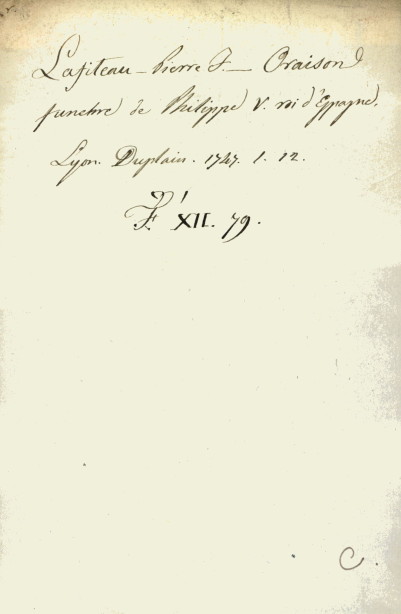 Lafiteau - Pierre F. - Oraison
funebre de Philippe V. roi d'Espagne.
Lyon. Duplain. 1747. 1. 12.
F. XII. 79.
C.